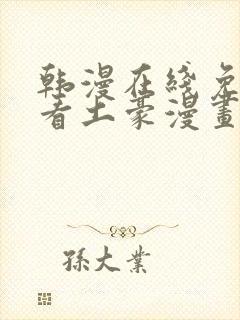 韩漫在线免
看土豪漫畫
孫大業